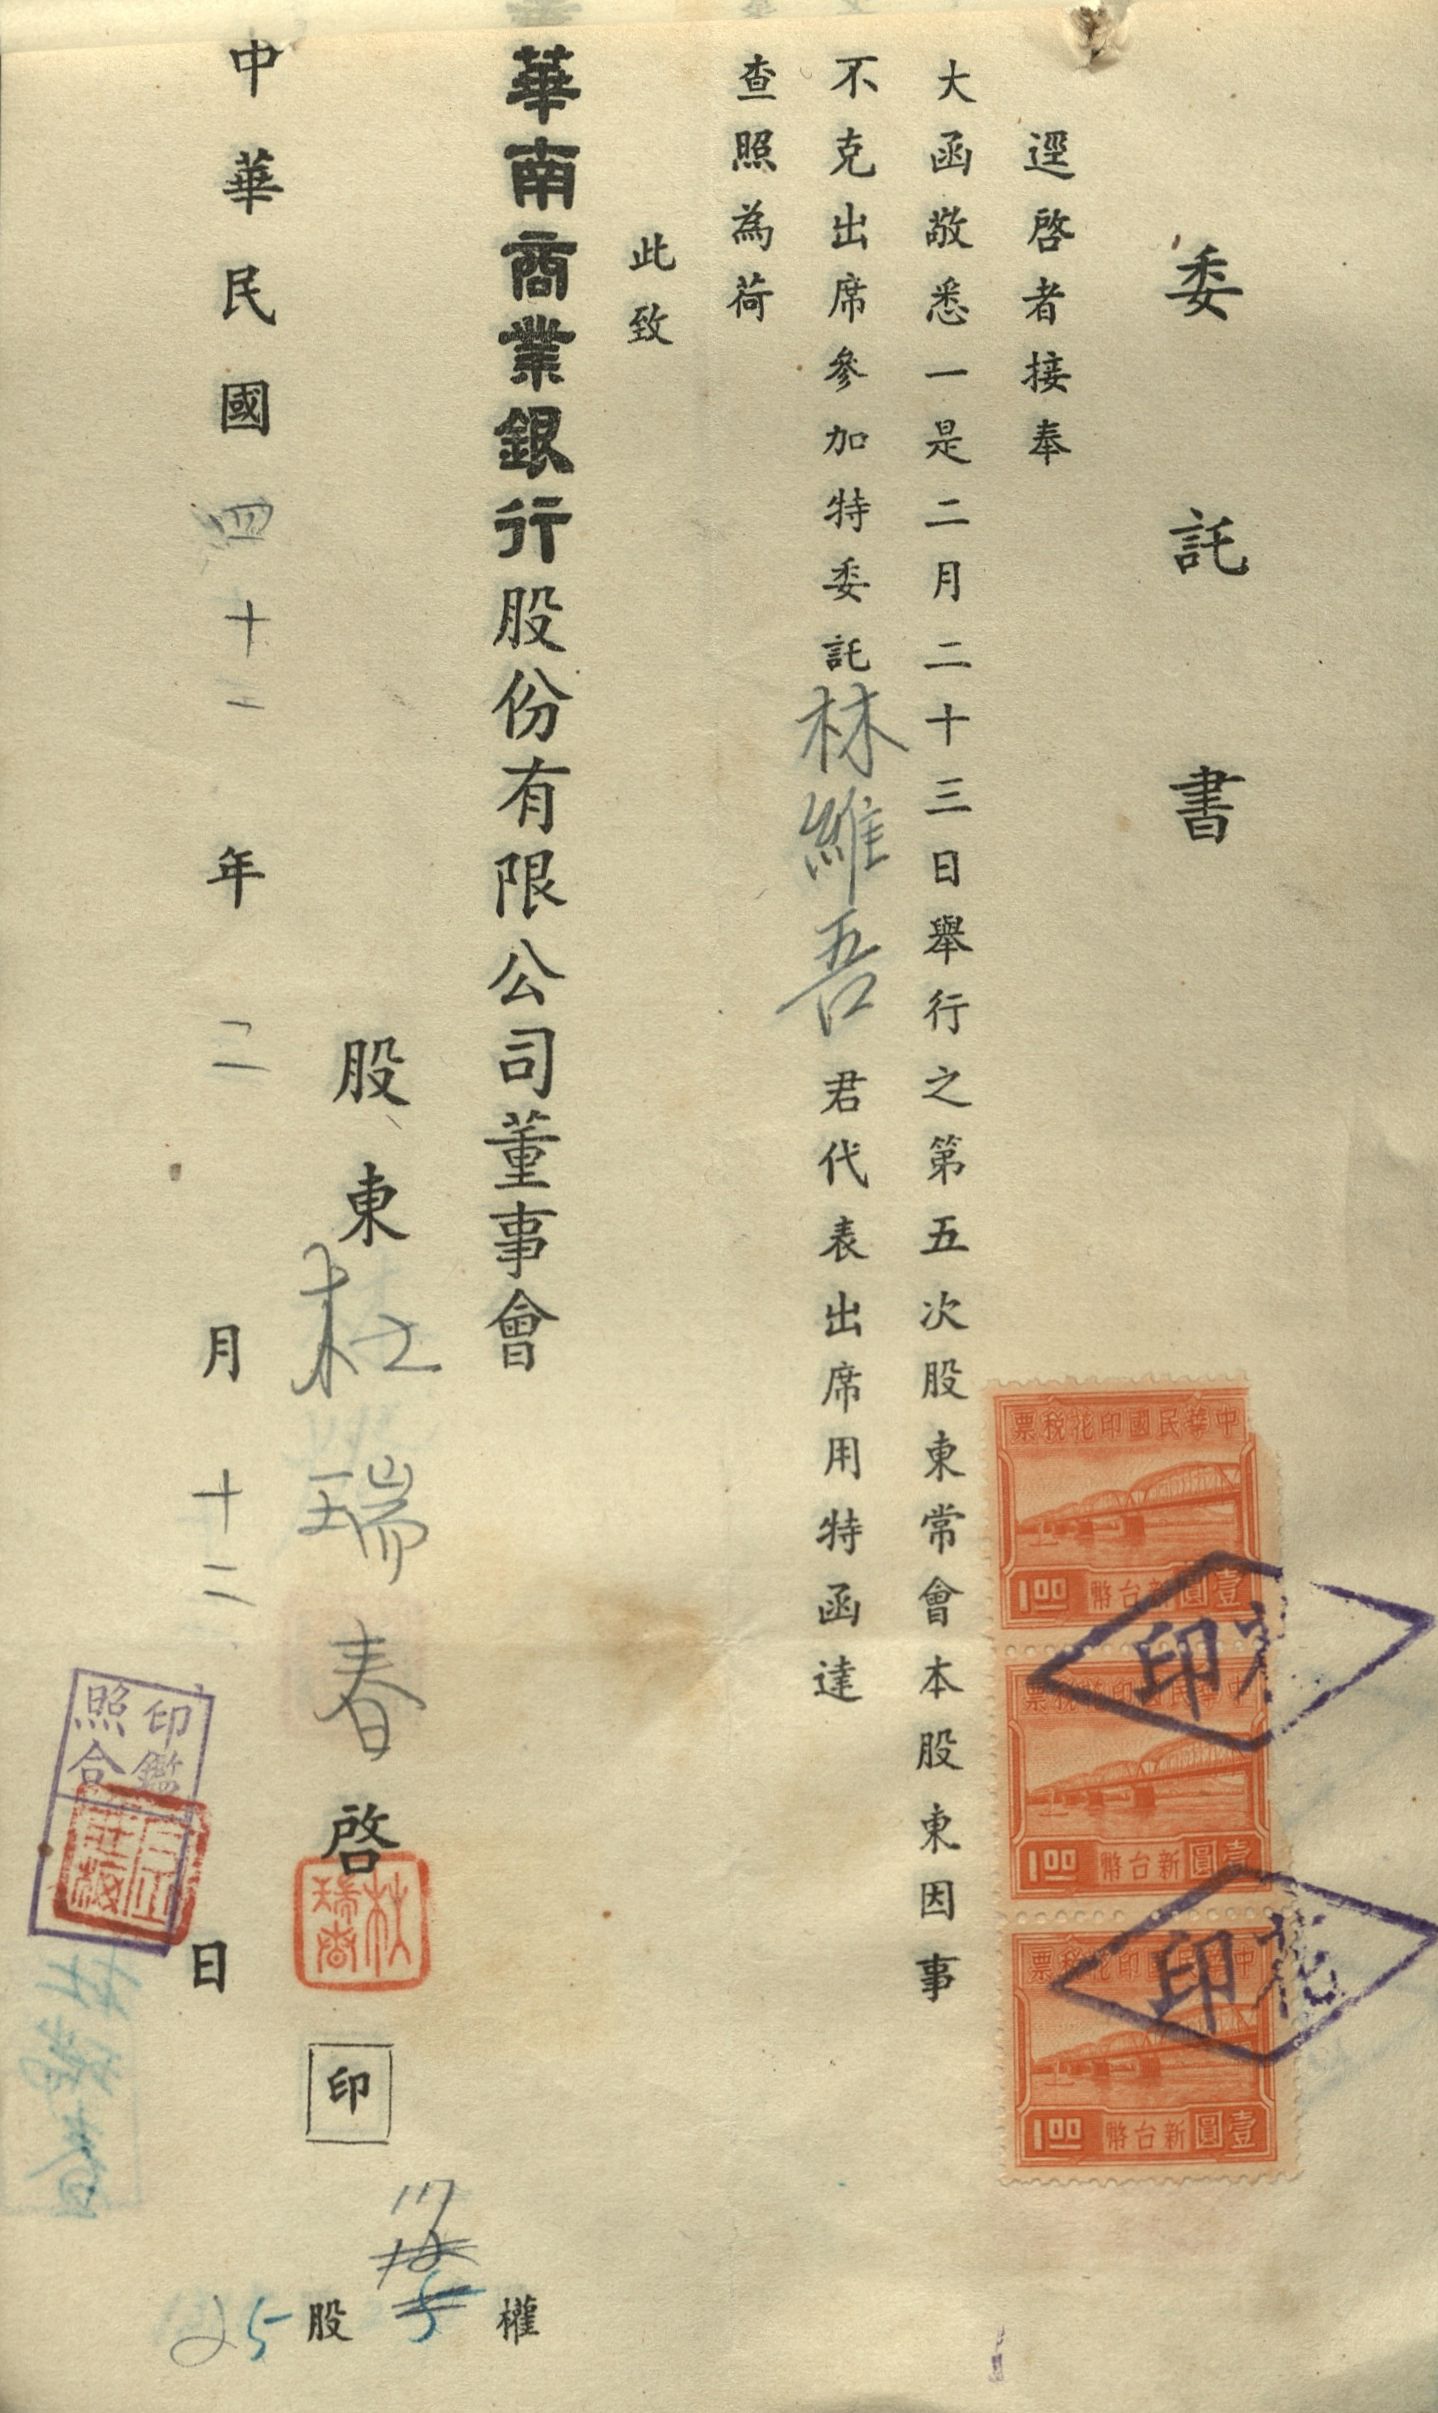 委託書
逕啓者接奉
大函敬悉一是二月二十三日舉行之第五次股東常會本股東因事
不克出席參加特委託林維吾君代表出席用特函達
查照為荷
此致
華南商業銀行股份有限公司董事會
股東杜瑞春啓
印
中華民國四十二年二月十二日
權
股
25
17
中華民國印花稅票
1.00 新台幣壹圓
中華民國印花稅票
1.00 新台幣壹圓
中華民國印花稅票
1.00 新台幣壹圓
印花
印花
印鑑
照合
杜瑞春